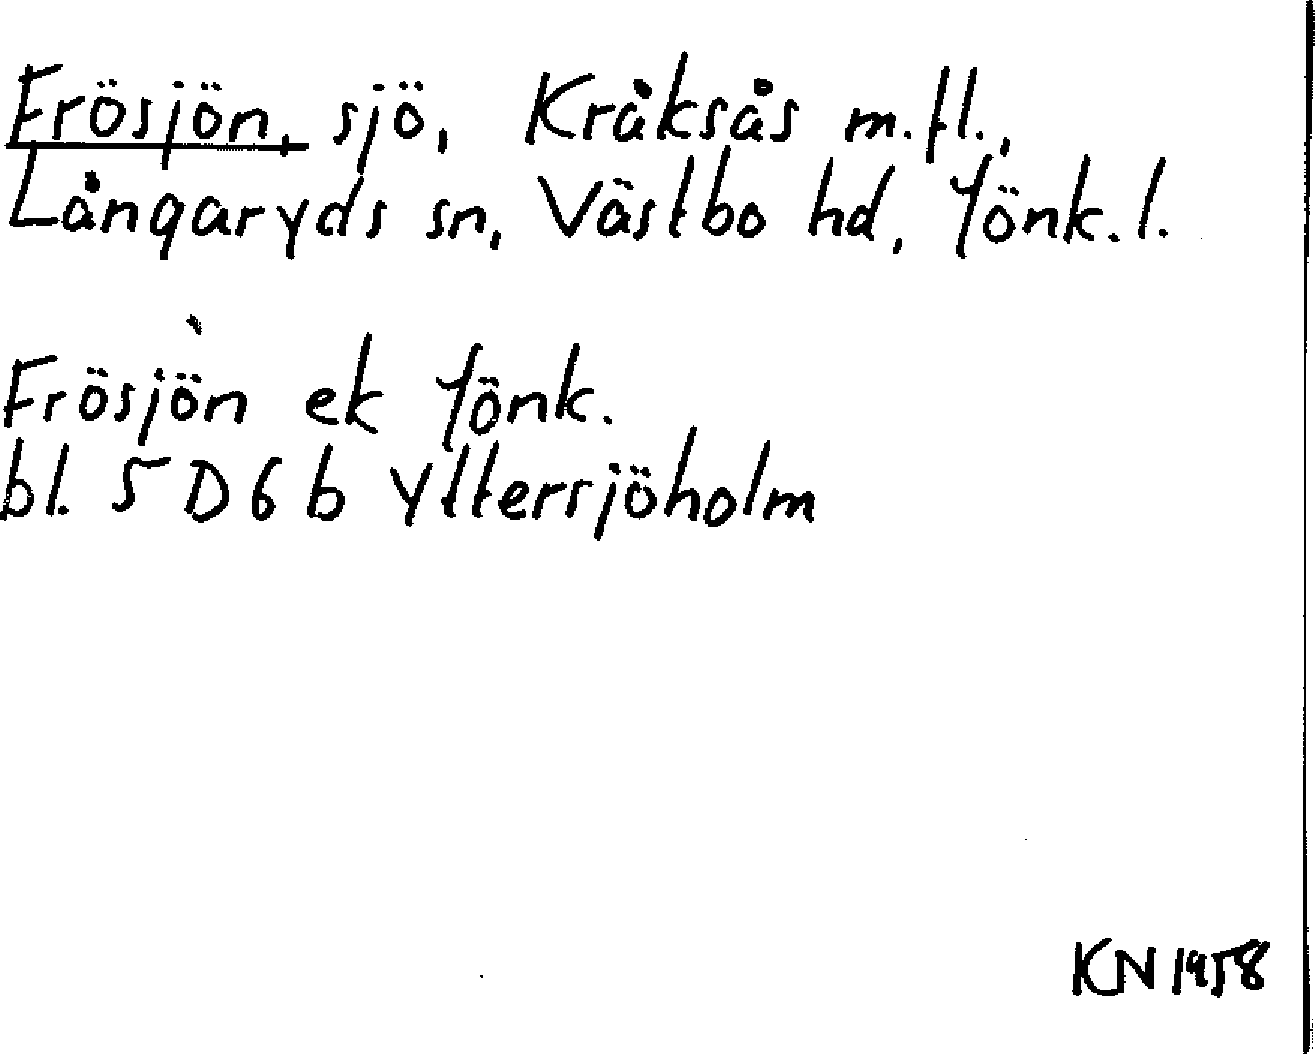 Frösjön, sjö, Kråksås m.fl.,
Långaryds sn, Västbo hd, Jönk.l.
Frösjön ek Jönk.
bl. 5 D 6 b Yttersjöholm
KN 1958